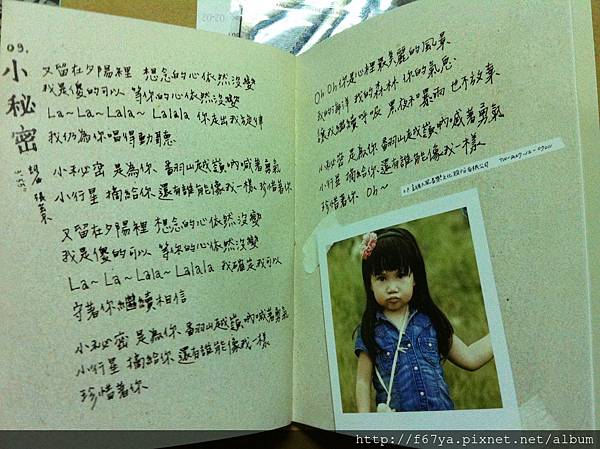 09.
小秘密
又留在夕陽裡 想念的心依然沒變
我是傻的可以 等你的心依然沒變
La~La~Lala~Lalala 你走出我
我仍為你唱得動聽
小秘密 是為你 翻山越嶺吶喊著勇氣
小行星 摘給你 還有誰能像我一樣 珍惜著你
又留在夕陽裡 想念的心依然沒變
我是傻的可以 等你的心依然沒變
La~La~Lala~Lalala 我確定我可以
守著你繼續相信
小秘密 是為你 翻山越嶺吶喊著勇氣
小行星 摘給你 還有誰能像我一樣
珍惜著你
Oh Oh 你是心裡最美麗的風景
我的海洋 我的森林 你的氣息
讓我繼續呼吸 黑夜和暴雨 也不放棄
小秘密 是為你 翻山越嶺吶喊著勇氣
小行星 摘給你 還有誰能像我一樣
珍惜著你 Oh~
http://f67ya.pixnet.net/album